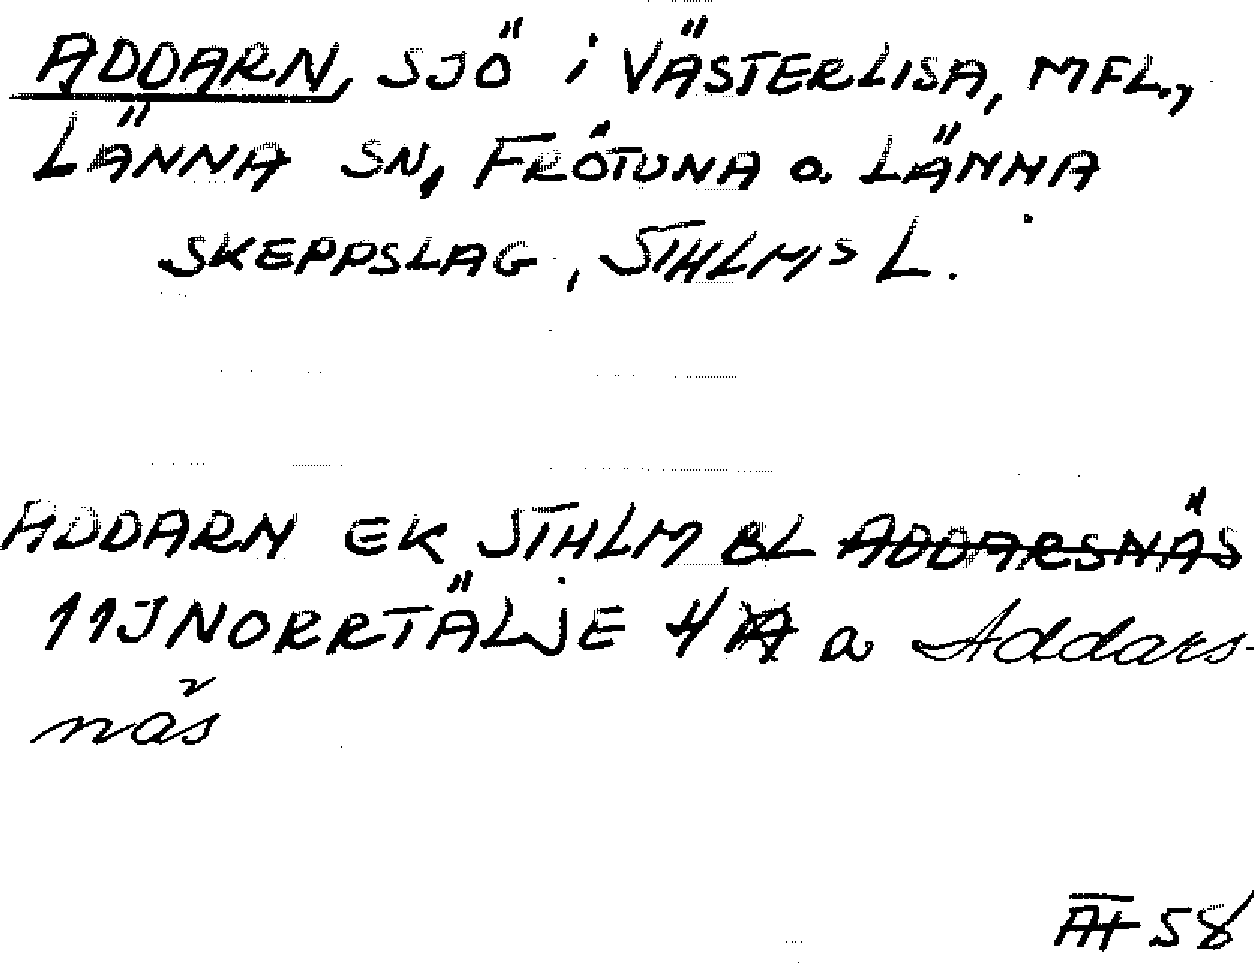 ADDARN, SJÖ i VÄSTERLISA, MFL.,
LÄNNA SN, FRÖTUNA o. LÄNNA
SKEPPSLAG, STHLMS L.
ADDARN EK STHLM BL ADDARSNÄS
11J NORRTÄLJE 4 a Addars-
näs
58